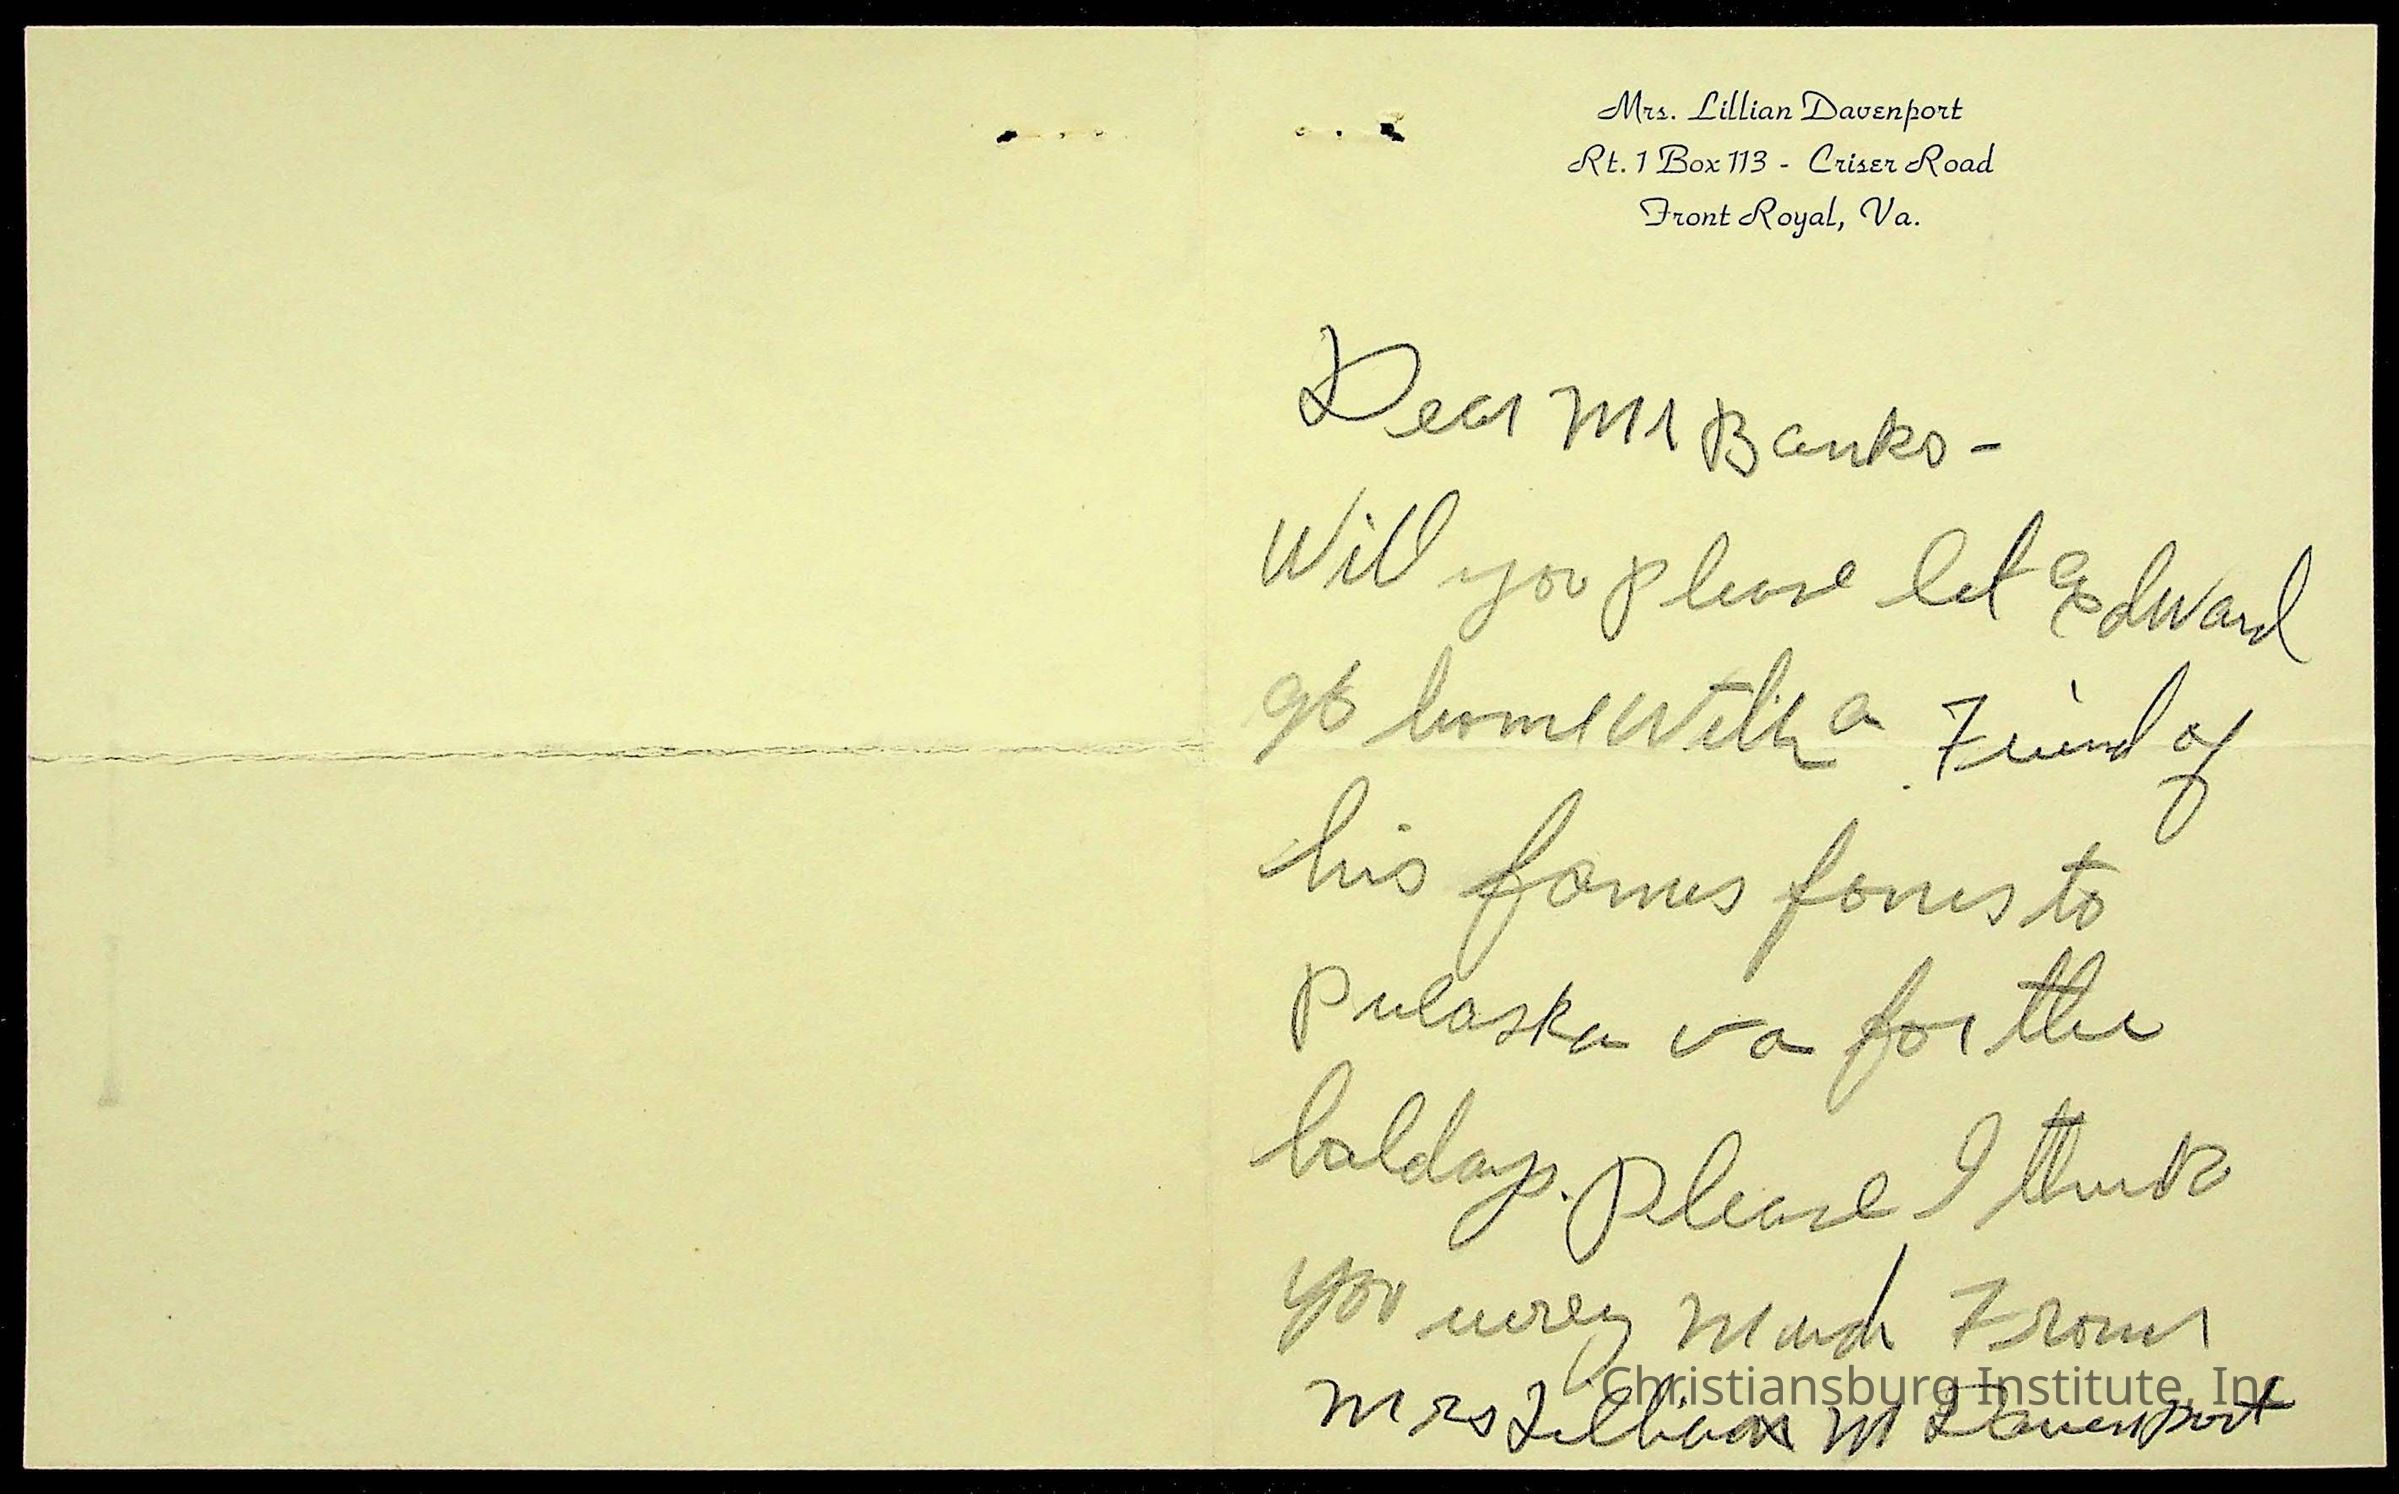 Mrs. Lillian Davenport
Rt. 1 Box 113 - Criser Road
Front Royal, Va.
Dear Mr Banks -
Will you please let Edward
go home with a Friend of
his to
Pulaska va for the
holdays. Please I thank
you very much From
Mrs Lillian M Davenport
Christiansburg Institute, Inc